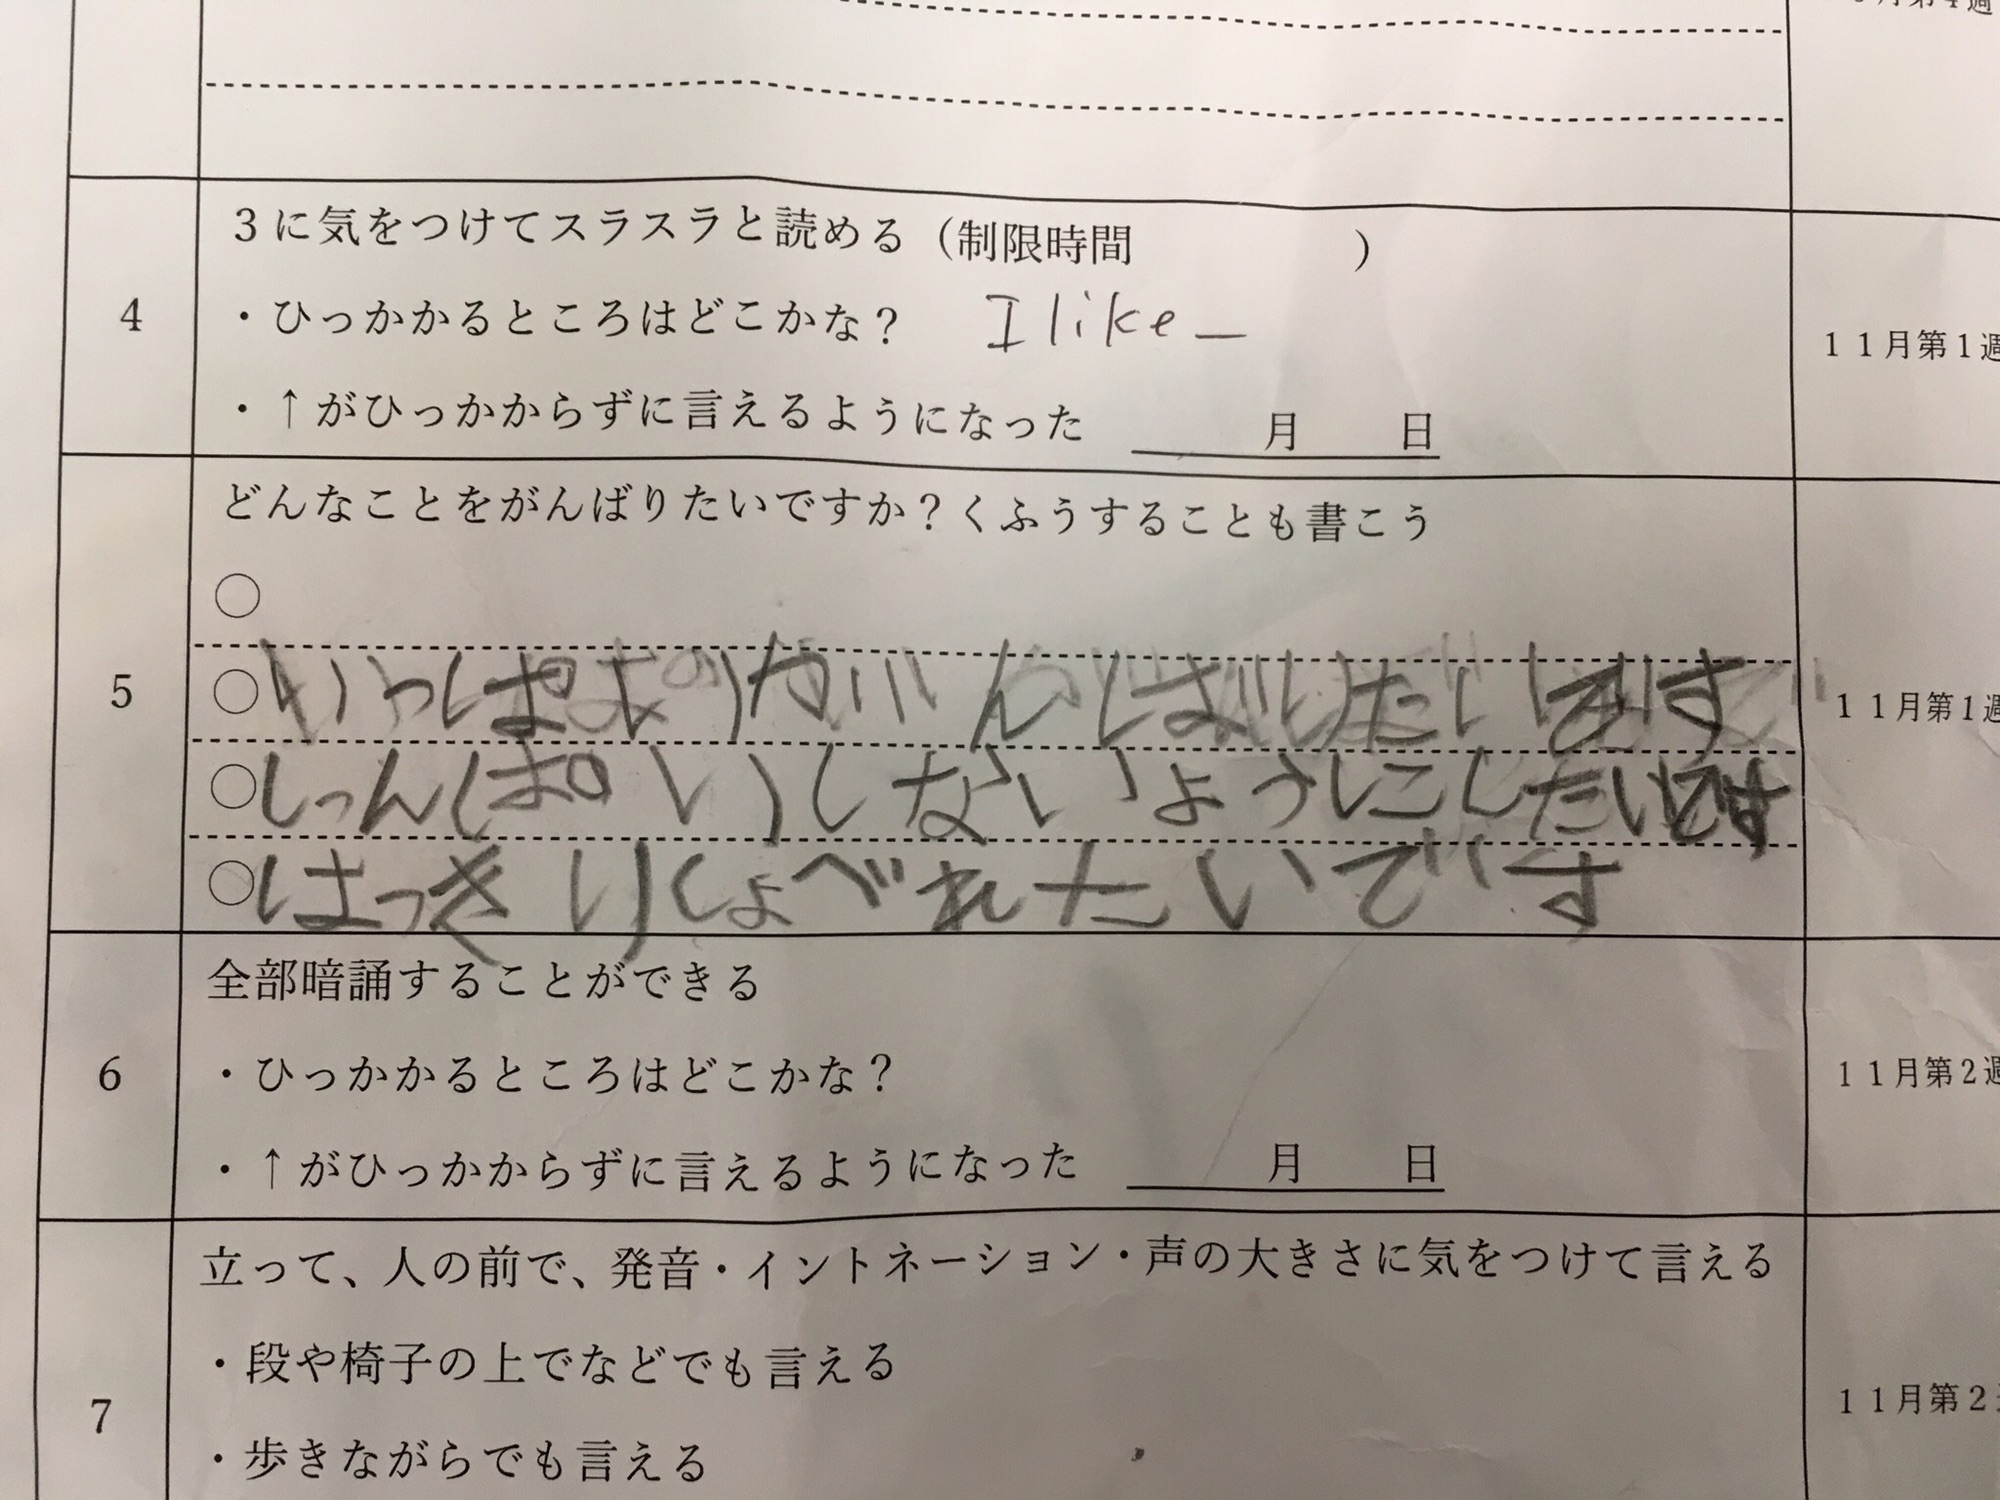 3に気をつけてスラスラと読める（制限時間　　　）
4
・ひっかかるところはどこかな？ I like _
11月第1週
・↑がひっかからずに言えるようになった　月　日
どんなことをがんばりたいですか？くふうすることも書こう
○
5
○いっぱい がんばりたいです
11月第1週
○しっんぱいしないようにしたいです
○はっきりしょべれたいです
全部暗誦することができる
6
・ひっかかるところはどこかな？
11月第2週
・↑がひっかからずに言えるようになった　月　日
立って、人の前で、発音・イントネーション・声の大きさに気をつけて言える
・段や椅子の上でなどでも言える
7
11月第2
・歩きながらでも言える